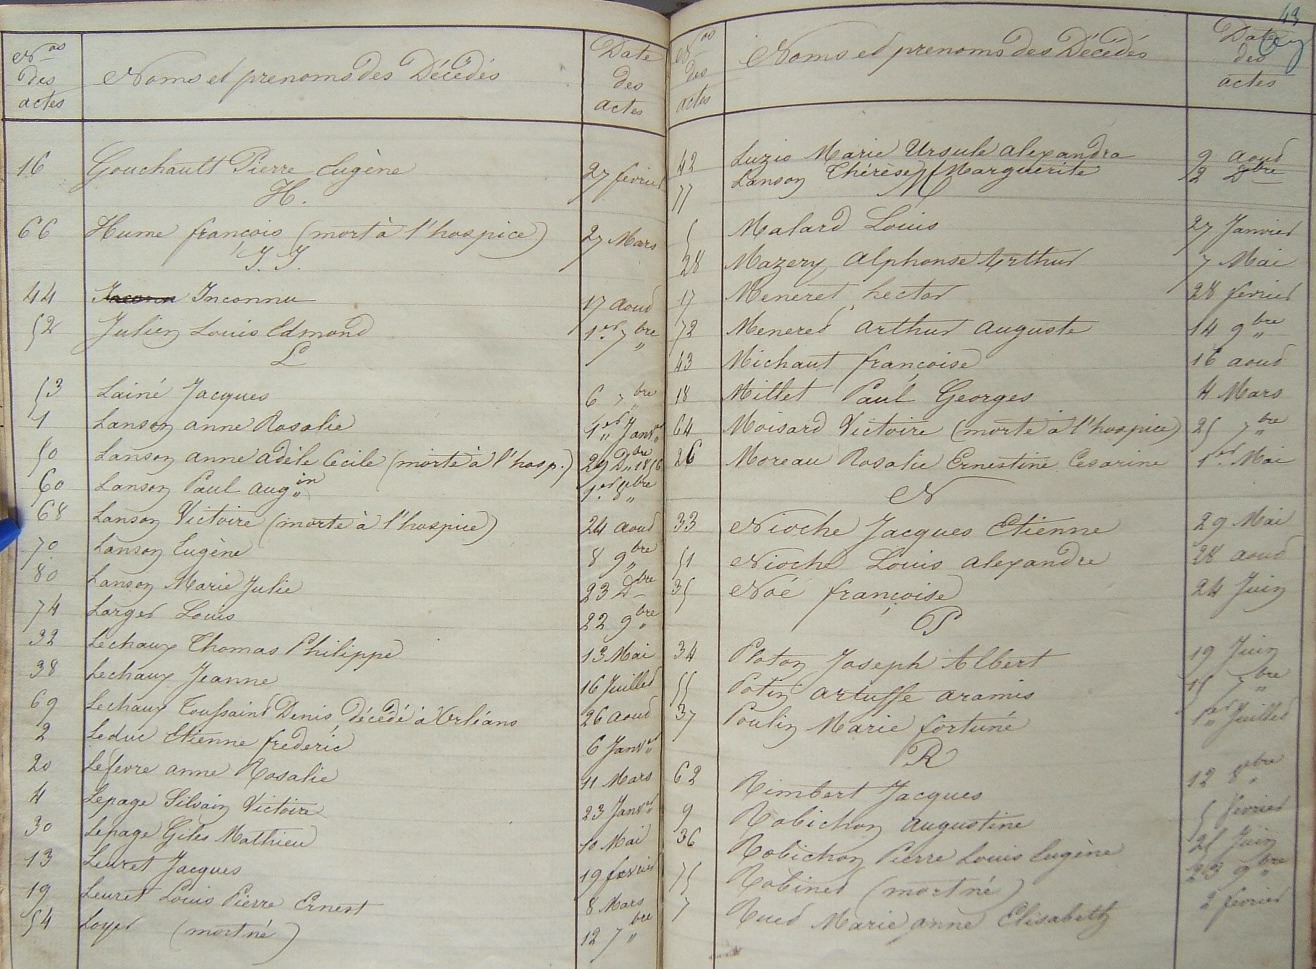 Nos des actes | Noms et prenoms des Décédés | Date des actes
16 Gouchault Pierre Eugène 27 fevrier
H.
66 Hume francois (mort à l'hospice) 27 Mars
I. J.
44 Inconnu 17 aout
52 Julien Louis Edmond 1er 7bre
L
53 Lainé Jacques 6 7bre
1 Lanson anne Rosalie 1er Janvr
50 Lanson anne adèle Cécile (morte à l'hosp.) 29 Dbre 1856
60 Lanson Paul augin 1er 8bre
68 Lanson Victoire (morte à l'hospice) 24 aout
70 Lanson Eugène 8 9bre
80 Lanson Marie Julie 23 Dbre
74 Larget Louis 22 9bre
32 Lechaux Thomas Philippe 13 Mai
38 Lechaux Jeanne 16 Juillet
69 Lechaux Toussaint Denis décédé à Orléans 26 aout
2 Leduc Etienne frederic 6 Janvr
20 Lefevre anne Rosalie 11 Mars
4 Lepage Silvain Victoire 23 Janvr
30 Lepage Giles Mathieu 10 Mai
13 Leuret Jacques 19 fevrier
19 Leuret Louis Pierre Ernest 8 Mars
54 Loyet (mort né) 12 7bre
43
Nos des actes | Noms et prenoms des Décédés | Date des actes
42 Luzio Marie Ursule alexandra 9 aout
77 Lanson Thérèse Marguerite 2 Dbre
M
5 Malard Louis 27 Janvier
28 Mazery Alphonse Arthur 7 Mai
17 Meneret hector 28 fevrier
72 Meneret Arthur auguste 14 9bre
43 Michaut francoise 16 aout
18 Millet Paul Georges 4 Mars
64 Moisard Victoire (morte à l'hospice) 25 7bre
26 Moreau Rosalie Ernestine Cesarine 1er Mai
N
33 Nioche Jacques Etienne 29 Mai
51 Nioche Louis alexandre 28 aout
35 Noé françoise 24 Juin
P
34 Ploton Joseph Albert 19 Juin
55 Potin artuffe aramis 15 7bre
37 Poulin Marie fortuné 1er Juillet
R
62 Rimbert Jacques 12 8bre
9 Robichon augustine 5 fevrier
36 Robichon Pierre Louis Eugène 25 Juin
75 Robinet (mort né) 23 9bre
7 Rued Marie anne Elisabeth 2 fevrier